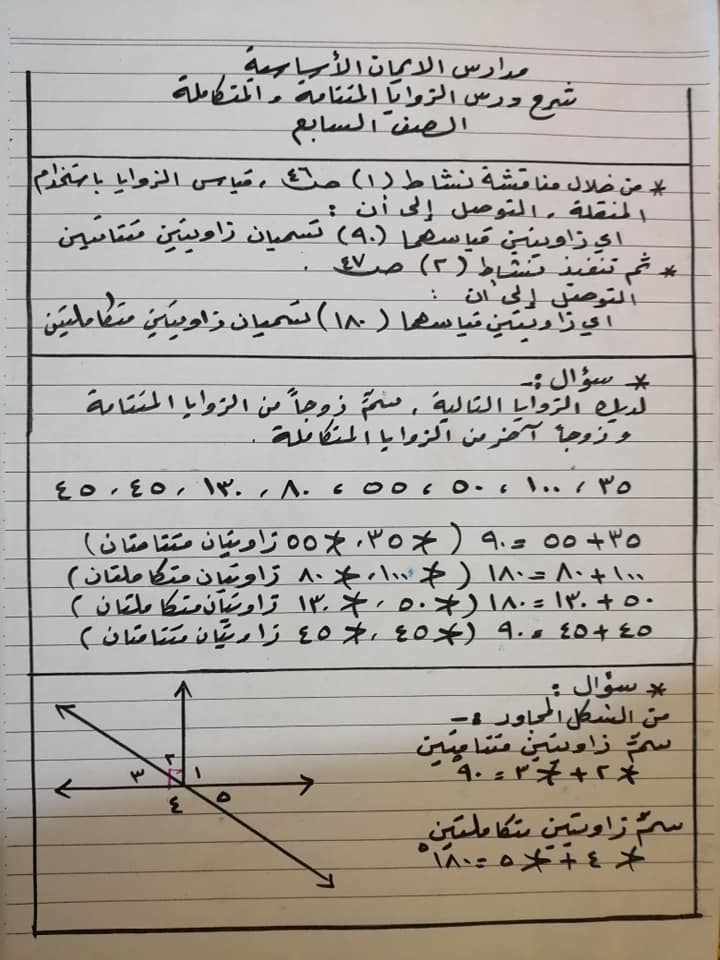 مدارس الايمان الأساسية
شرح درس الزوايا المتتامة و المتكاملة
الصف السابع
* من خلال مناقشة نشاط (١) ص٤٦ ، قياس الزوايا باستخدام
المنقلة ، التوصل إلى أن :
اي زاويتين قياسهما (٩٠) تسميان زاويتين متتامتين
* ثم تنفيذ نشاط (٢) ص٤٧ .
التوصل إلى أن :
اي زاويتين قياسهما (١٨٠) تسميان زاويتين متكاملتين
* سؤال :-
لديك الزوايا التالية ، سمِّ زوجاً من الزوايا المتتامة
و زوجاً آخر من الزوايا المتكاملة .
٣٥ ، ١٠٠ ، ٥٠ ، ٥٥ ، ٨٠ ، ١٣٠ ، ٤٥ ، ٤٥
٣٥ + ٥٥ = ٩٠ (∢ ٣٥ ، ∢ ٥٥ زاويتان متتامتان)
١٠٠ + ٨٠ = ١٨٠ (∢ ١٠٠ ، ∢ ٨٠ زاويتان متكاملتان)
٥٠ + ١٣٠ = ١٨٠ (∢ ٥٠ ، ∢ ١٣٠ زاويتان متكاملتان)
٤٥ + ٤٥ = ٩٠ (∢ ٤٥ ، ∢ ٤٥ زاويتان متتامتان)
* سؤال :
من الشكل المجاور :-
سمِّ زاويتين متتامتين
∢ ٢ + ∢ ٣ = ٩٠°
سمِّ زاويتين متكاملتين
∢ ٤ + ∢ ٥ = ١٨٠°
١
٢
٣
٤
٥